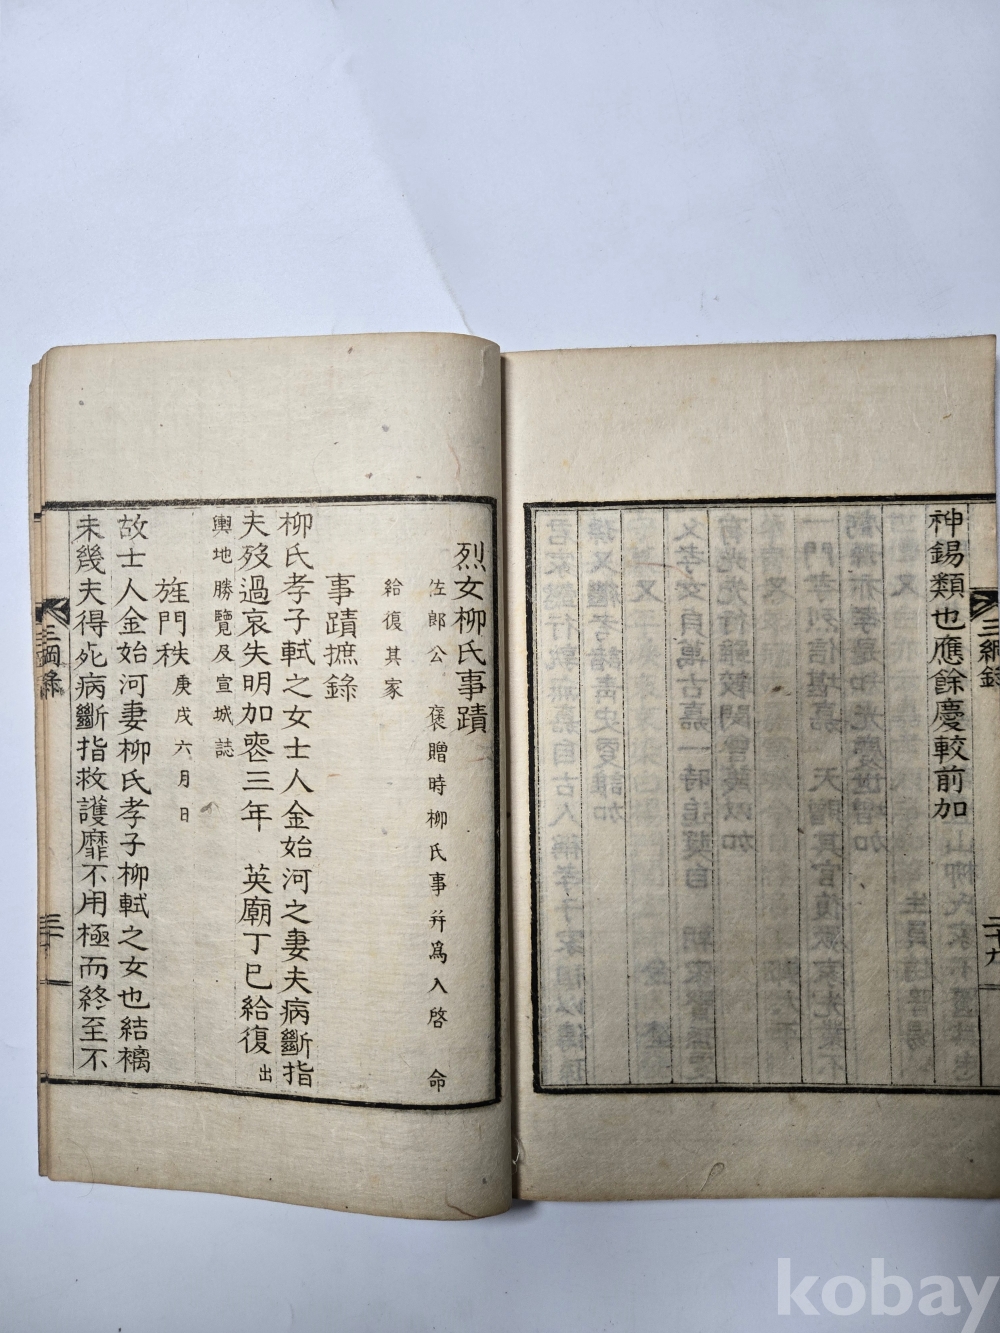 三綱錄
二十九
神錫類也應餘慶較前加
烈女柳氏事蹟
佐郎公 褒贈時柳氏事并爲入啓 命
給復其家
事蹟摭錄
柳氏孝子軾之女士人金始河之妻夫病斷指
夫歿過哀失明加喪三年 英廟丁巳給復出
輿地勝覽及宣城誌
旌門秩庚戌六月日
故士人金始河妻柳氏孝子柳軾之女也結褵
未幾夫得死病斷指救護靡不用極而終至不
三綱錄
三十
kobay